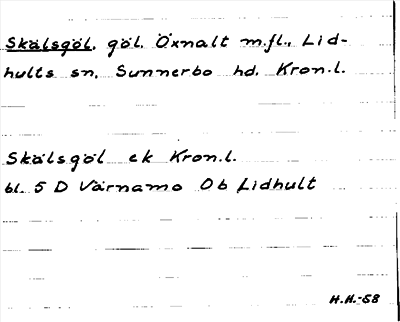 Skälsgöl, göl, Öxnalt m.fl., Lid-
hults sn, Sunnerbo hd, Kron.l.
Skälsgöl ek Kron.l.
bl. 5 D Värnamo Ob Lidhult
H.H.-58